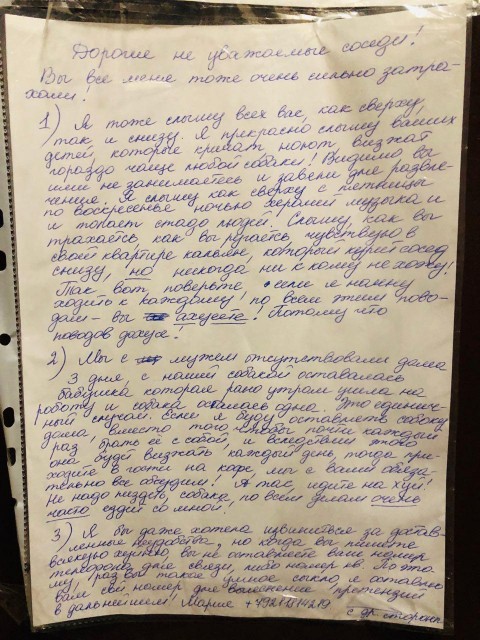 Дорогие не уважаемые соседи!
Вы все меня тоже очень сильно затра-
хали!
1) Я тоже слышу всех вас, как сверху,
так и снизу. Я прекрасно слышу ваших
детей, которые кричат, ноют, визжат
гораздо чаще любой собаки! Видимо вы
ими не занимаетесь и завели для развле-
чения. Я слышу как сверху с пятницы
по воскресенье ночью херачит музыка и
и топает стадо людей. Слышу, как вы
трахаетесь, как вы ругаетесь, чувствую в
своей квартире кальян, который курит сосед
снизу, но никогда ни к кому не хожу!
Так вот, поверьте, если я начну
ходить к каждому! по всем этим пово-
дам - вы ахуеете! Потому что
поводов дохуя!
2) Мы с мужем отсутствовали дома
3 дня, с нашей собакой оставалась
бабушка которая рано утром ушла на
работу и собака осталась одна. Это единич-
ный случай. Если я буду оставлять собаку
дома, вместо того чтобы почти каждый
раз брать её с собой, и вследствии этого
она будет визжать каждый день, тогда при-
ходите в гости на кофе, мы с вами обяза-
тельно все обсудим! А так, идите на хуй!
Не надо пиздеть, собака по всем делам очень
часто ездит со мной!
3) Я бы даже хотела извиниться за достав-
ленные неудобства, но когда вы пишите
всякую херню, вы не оставляете ваш номер
телефона для связи, либо номер кв. По это-
му, раз вы такое умное ссыкло, я оставлю
вам свой номер для выяснения претензий
в дальнейшем! Мария
с др стороны